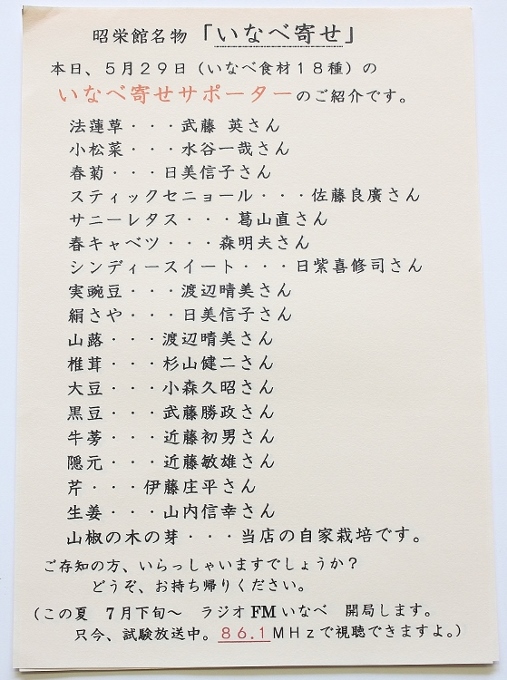 昭栄館名物「いなべ寄せ」
本日、5月29日（いなべ食材18種）の
いなべ寄せサポーターのご紹介です。
法蓮草・・・武藤 英さん
小松菜・・・水谷一哉さん
春菊・・・日美信子さん
スティックセニョール・・・佐藤良廣さん
サニーレタス・・・葛山直さん
春キャベツ・・・森明夫さん
シンディースイート・・・日紫喜修司さん
実豌豆・・・渡辺晴美さん
絹さや・・・日美信子さん
山蕗・・・渡辺晴美さん
椎茸・・・杉山健二さん
大豆・・・小森久昭さん
黒豆・・・武藤勝政さん
牛蒡・・・近藤初男さん
隠元・・・近藤敏雄さん
芹・・・伊藤庄平さん
生姜・・・山内信幸さん
山椒の木の芽・・・当店の自家栽培です。
ご存知の方、いらっしゃいますでしょうか？
どうぞ、お持ち帰りください。
（この夏 7月下旬〜 ラジオFMいなべ 開局します。
只今、試験放送中。86.1MHzで視聴できますよ。）